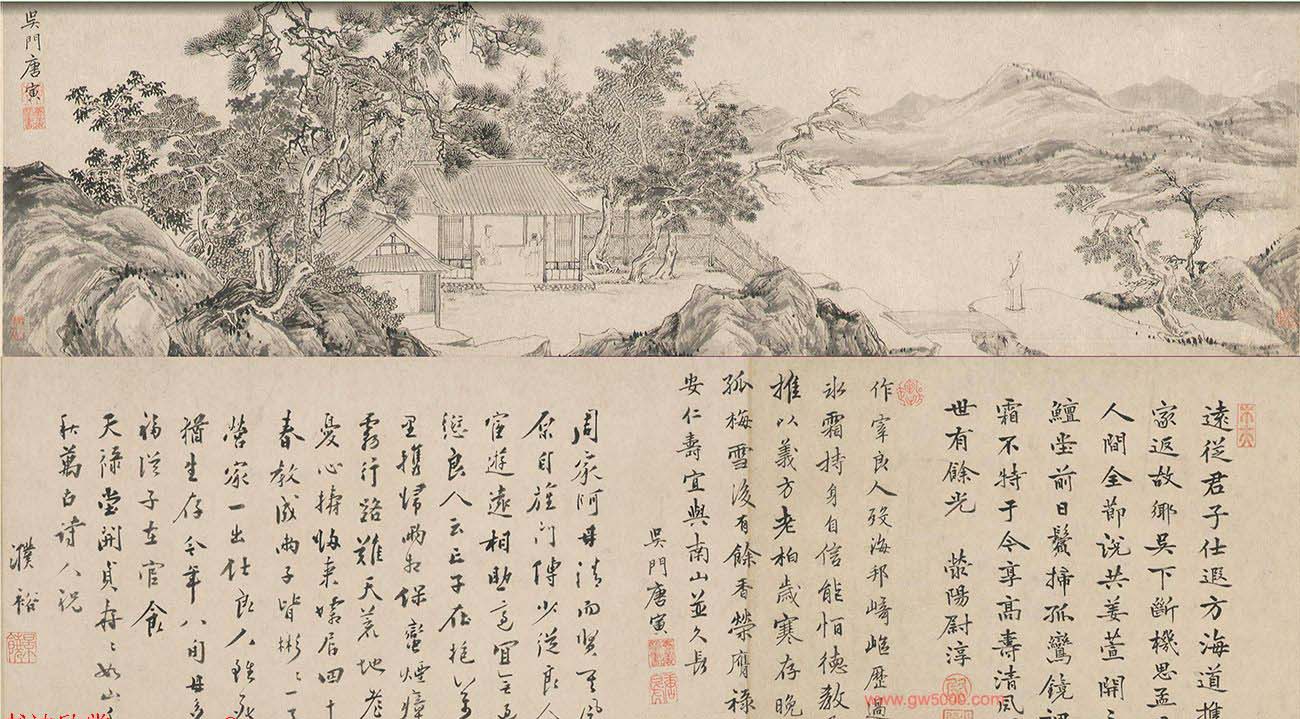 吳門唐寅
遠從君子仕遐方海道攜
家返故鄉吳下斷機思孟
人間全節說共姜萱開
鱣堂前日鬢掃孤鸞鏡裡
霜不特于今享高壽清風
世有餘光 滎陽尉淳
作宰良人歿海邦崎嶇歷過
冰霜持身自信能恒德教
推以義方老柏歲寒存晚
孤梅雪後有餘香榮膺祿
安仁壽宜與南山並久長
吳門唐寅
周家阿母清而賢
原自旌門傳少從良人
宦遊遠相助
良人云亡子在抱
里攜歸兩相保蠻煙瘴
霧行路難天荒地老
憂心擣悔來孀居四十
春教成兩子皆彬彬
營家一出仕良人雖死
猶生存今年八旬母
福從子在官食
天祿堂開貞壽如山
秋萬古詩人祝
濮裕
www.gw5000.com